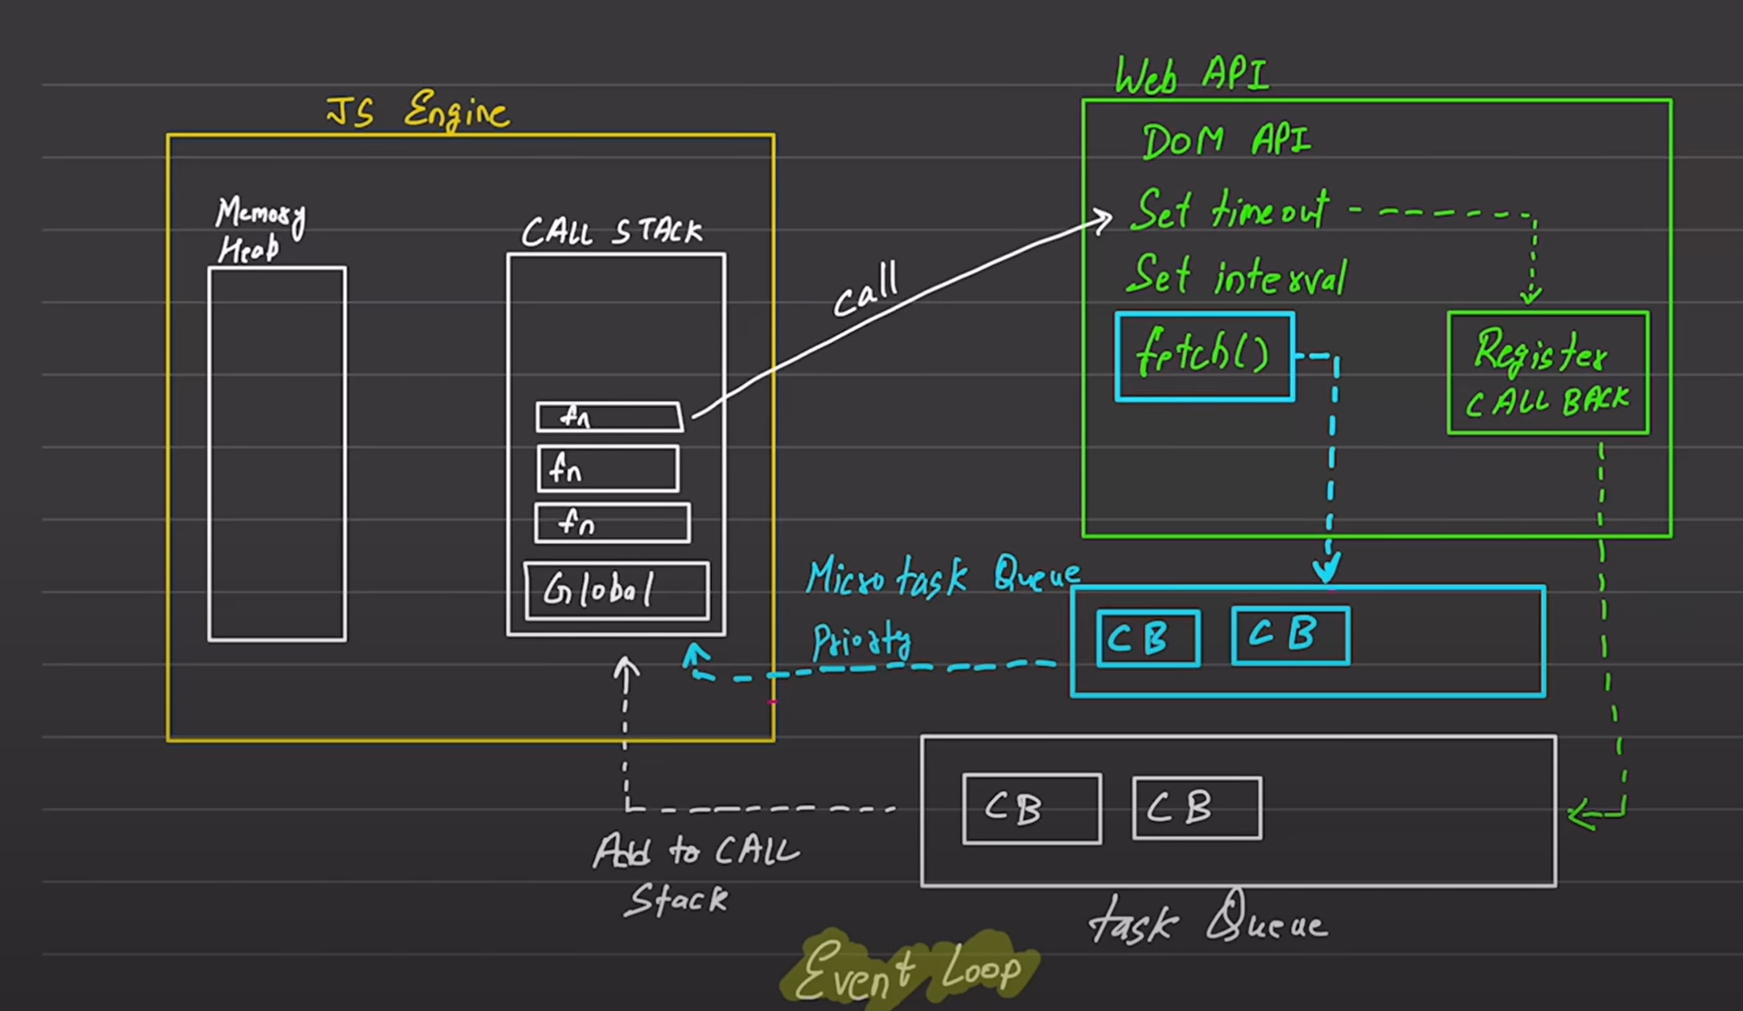 JS Engine
Memory
Heap
CALL STACK
fn
fn
fn
Global
call
Web API
DOM API
Set timeout
Set interval
fetch()
Register
CALL BACK
Micro task Queue
Priorty
CB CB
CB CB
Add to CALL
Stack
task Queue
Event Loop